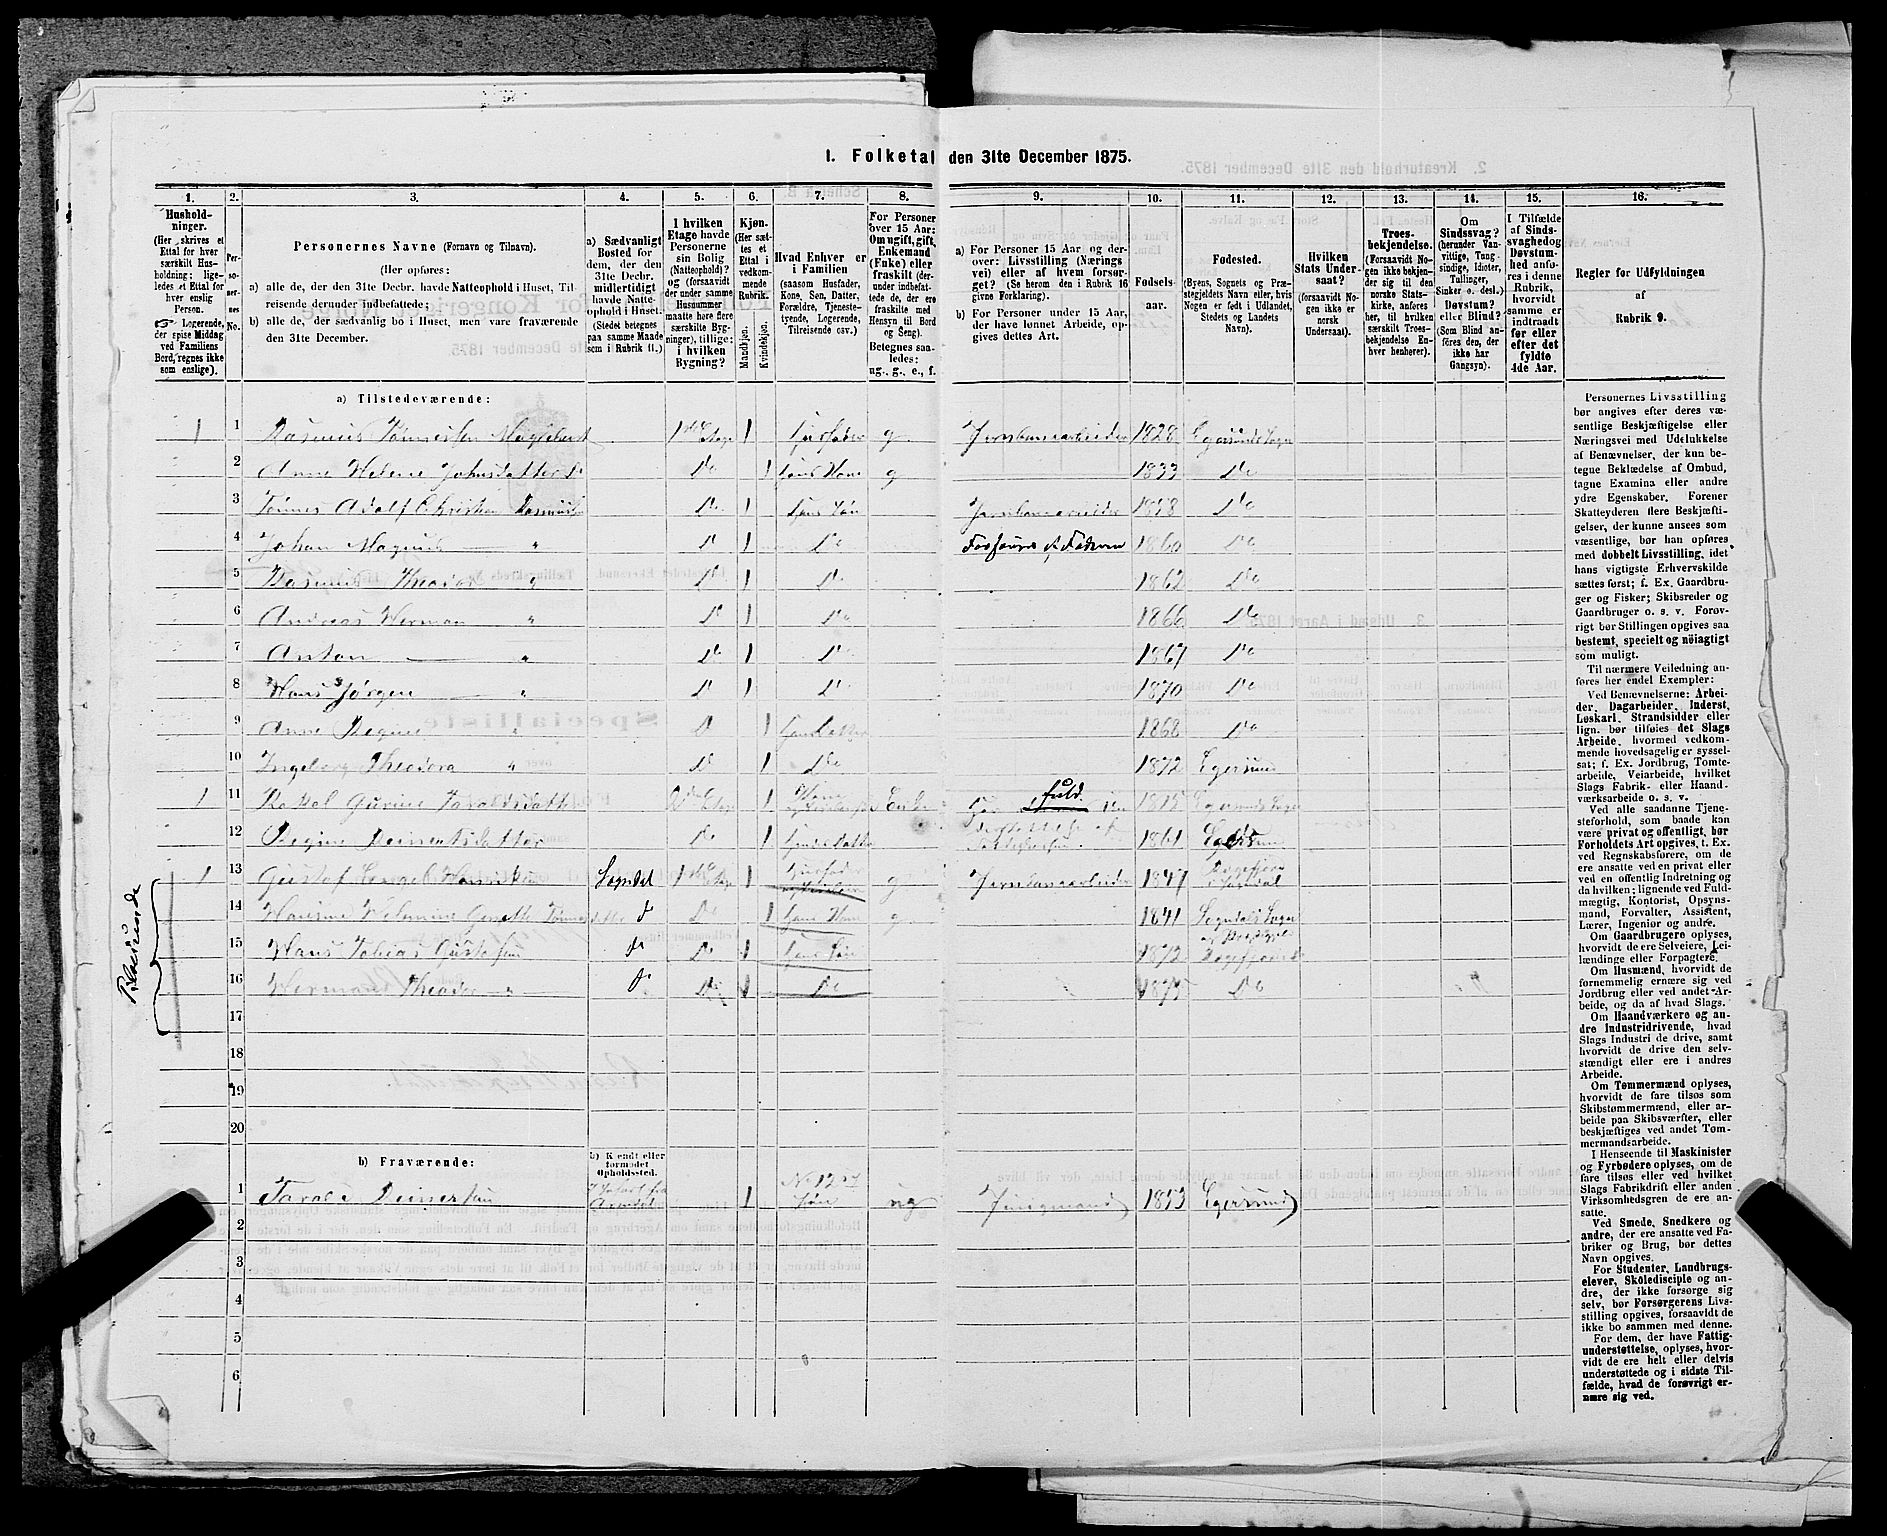 1. Folketal den 31te December 1875.
1. 2. 3. 4. 5. 6. 7. 8. 9. 10. 11. 12. 13. 14. 15. 16.
Hushold-
ninger.
(Her skrives et
Ettal for hver
særskilt Hus-
holdning; lige-
ledes et Ettal for
hver enslig
Person.
Logerende,
der spise Middag
ved Familiens
Bord, regnes ikke
som enslige).
Per-
so-
ner-
nes
No.
Personernes Navne (Fornavn og Tilnavn).
(Her opføres:
a) alle de, der den 31te Decbr. havde Natteophold i Huset, Til-
reisende derunder indbefattede;
b) alle de, der sædvanlig bo i Huset, men vare fraværende
den 31te December.
a) Sædvanligt
Bosted for
dem, der den
31te Decbr.
midlertidigt
havde Natte-
ophold i Huset.
(Stedet betegnes
paa samme Maade
som i Rubrik 11.)
I hvilken
Etage havde
Personerne
sin Bolig
(Natteophold)?
og (forsaavidt
der under samme
Husnummer
maatte høre flere
særskilte Byg-
ninger), tillige:
i hvilken
Bygning?
Kjøn.
(Her sæt-
tes et
Ettal i
vedkom-
mende
Rubrik.
Mandkjøn.
Kvindekjøn.
Hvad Enhver er
i Familien
(saasom Husfader,
Kone, Søn, Datter,
Forældre, Tjeneste-
tyende, Logerende,
Tilreisende osv.)
For Personer
over 15 Aar:
Om ugift, gift,
Enkemand
(Enke) eller
fraskilt (der-
under indbefat-
tede de, der ere
fraskilte med
Hensyn til Bord
og Seng).
Betegnes saa-
ledes:
ug., g., e., f.
a) For Personer 15 Aar og der-
over: Livsstilling (Nærings
vei) eller af hvem forsør-
get? (Se herom den i Rubrik 16
givne Forklaring).
b) For Personer under 15 Aar,
der have lønnet Arbeide, op-
gives dettes Art.
Fødsels-
aar.
Fødested.
(Byens, Sognets og Præ-
stegjeldets Navn eller, hvis
Nogen er født i Udlandet,
Stedets og Landets
Navn).
Hvilken
Stats Under-
saat?
(forsaavidt No-
gen ikke er
norsk
Undersaat).
Troes-
bekjendelse.
(Forsaavidt No-
gen ikke bekjen-
der sig til den
norske Stats-
kirke, anføres
her, til hvilken
særskilt Troes-
bekjendelse En-
hver henhører).
Om
Sindssvag?
(herunder Van-
vittige, Tung
sindige, Idioter,
Tullinger,
Sinker o. desl.)
Døvstum?
eller Blind?
(Som Blind an-
føres den, der
ikke har
Gangsyn).
I Tilfælde
af Sinds-
svaghed og
Døvstum-
hed anfø-
res i denne
Rubrik,
hvorvidt
samme er
indtraadt
før eller
efter det
fyldte
4de Aar.
Regler for Udfyldningen
af
Rubrik 9.
a) Tilstedeværende:
1 1 Rasmus Tønnessen 1ste Etage 1 Husfader g Jernbanearbeider 1828 Egersunds Sogn
2 Anne Helene Johnsdatter Do 1 Hans Kone g 1833 Do
3 Tønnes Adolf Christian Do 1 Hans Søn Jernbanearbeider 1858 Do
4 Johan Magnus — " Do 1 Do Forsørges af Faderen 1860 Do
5 Rasmus Theodor " Do 1 Do 1862 Do
6 Andreas Herman " Do 1 Do 1866 Do
7 Anton — " Do 1 Do 1867 Do
8 Hans Jørgen — " Do 1 Do 1870 Do
9 Anne Regine " Do 1 Hans Datter 1868 Do
10 Ingeborg Theodora " Do 1 Do 1872 Egersund
1 11 Gurine Taraldsdatter Etage 1 Enke fuld. 1815 Egersunds Sogn
12 Regine Do 1 Hendes Datter 1861
1 13 Gustaf Sogndal 1ste Etage 1 Husfader g Jernbanearbeider 1847
14 Do Do 1 Hans Kone g 1841 Sogndals Sogn
15 Hans Tobias Gustafsen Do Do 1 Hans Søn 1872
16 Herman Theodor — " Do Do 1 Do 1875 Do
17
18
19
20
b) Fraværende:
b) Kjendt eller
formodet
Opholdssted.
1 Tarald 1 Søn ug Jungmand 1853 Egersund
2
3
4
5
6
Personernes Livsstilling
bør angives efter deres væ-
sentlige Beskjæftigelse eller
Næringsvei med Udelukkelse
af Benævnelser, der kun be-
tegne Beklædelse af Ombud,
tagne Examina eller andre
ydre Egenskaber. Forener
Skatteyderen flere Beskjæfti-
gelser, der kunne ansees som
væsentlige, bør han opføres
med dobbelt Livsstilling, idet
hans vigtigste Erhvervskilde
sættes først; f. Ex. Gaardbru-
ger og Fisker; Skibsreder og
Gaardbruger o. s. v. Forøv-
rigt bør Stillingen opgives saa
bestemt, specielt og nöiagtigt
som muligt.
Til nærmere Veiledning an-
føres her endel Exempler:
Ved Benævnelserne: Arbei-
der, Dagarbeider, Inderst,
Løskarl, Strandsidder eller
lign. bør tilføies det Slags
Arbeide, hvormed vedkom-
mende hovedsagelig er syssel-
sat; f. Ex. Jordbrug, Tomte-
arbeide, Veiarbeide, hvilket
Slags Fabrik- eller Haand-
værksarbeide o. s. v.
Ved alle saadanne Tjene-
steforhold, som baade kan
være privat og offentligt, bør
Forholdets Art opgives, t. Ex.
ved Regnskabsførere, om de
ere ansatte ved en privat eller
ved en offentlig Indretning og
da hvilken; lignende ved Fuld-
mægtig, Kontorist, Opsyns-
mand, Forvalter, Assistent,
Lærer, Ingeniør og andre.
Om Gaardbrugere oplyses,
hvorvidt de ere Selveiere, Lei-
lændinge eller Forpagtere.
Om Husmænd, hvorvidt de
fornemmelig ernære sig ved
Jordbrug eller ved andet Ar-
beide, og da af hvad Slags.
Om Haandværkere og an-
dre Industridrivende, hvad
Slags Industri de drive, samt
hvorvidt de drive den selv-
stændigt eller ere i andres
Arbeide.
Om Tømmermænd oplyses,
hvorvidt de fare tilsøs som
Skibstømmermænd, eller ar-
beide paa Skibsværfter, eller
beskjæftiges ved andet Tøm-
mermandsarbeide.
I Henseende til Maskinister
og Fyrbødere oplyses, om de
fare tilsøs eller ved hvilket
Slags Fabrikdrift eller anden
Virksomhedsgren de ere an-
satte.
Ved Smede, Snedkere og
andre, der ere ansatte ved Fa-
briker og Brug, bør dettes
Navn opgives.
For Studenter, Landbrugs-
elever, Skoledisciple og an-
dre, der ikke forsørge sig
selv, bør Forsørgerens Livs-
stilling opgives, forsaavidt de
ikke bo sammen med denne.
For dem, der have Fattig-
understøttelse, oplyses, hvor-
vidt de ere helt eller delvis
understøttede og i sidste Til-
fælde, hvad de forøvrigt er-
nære sig ved.